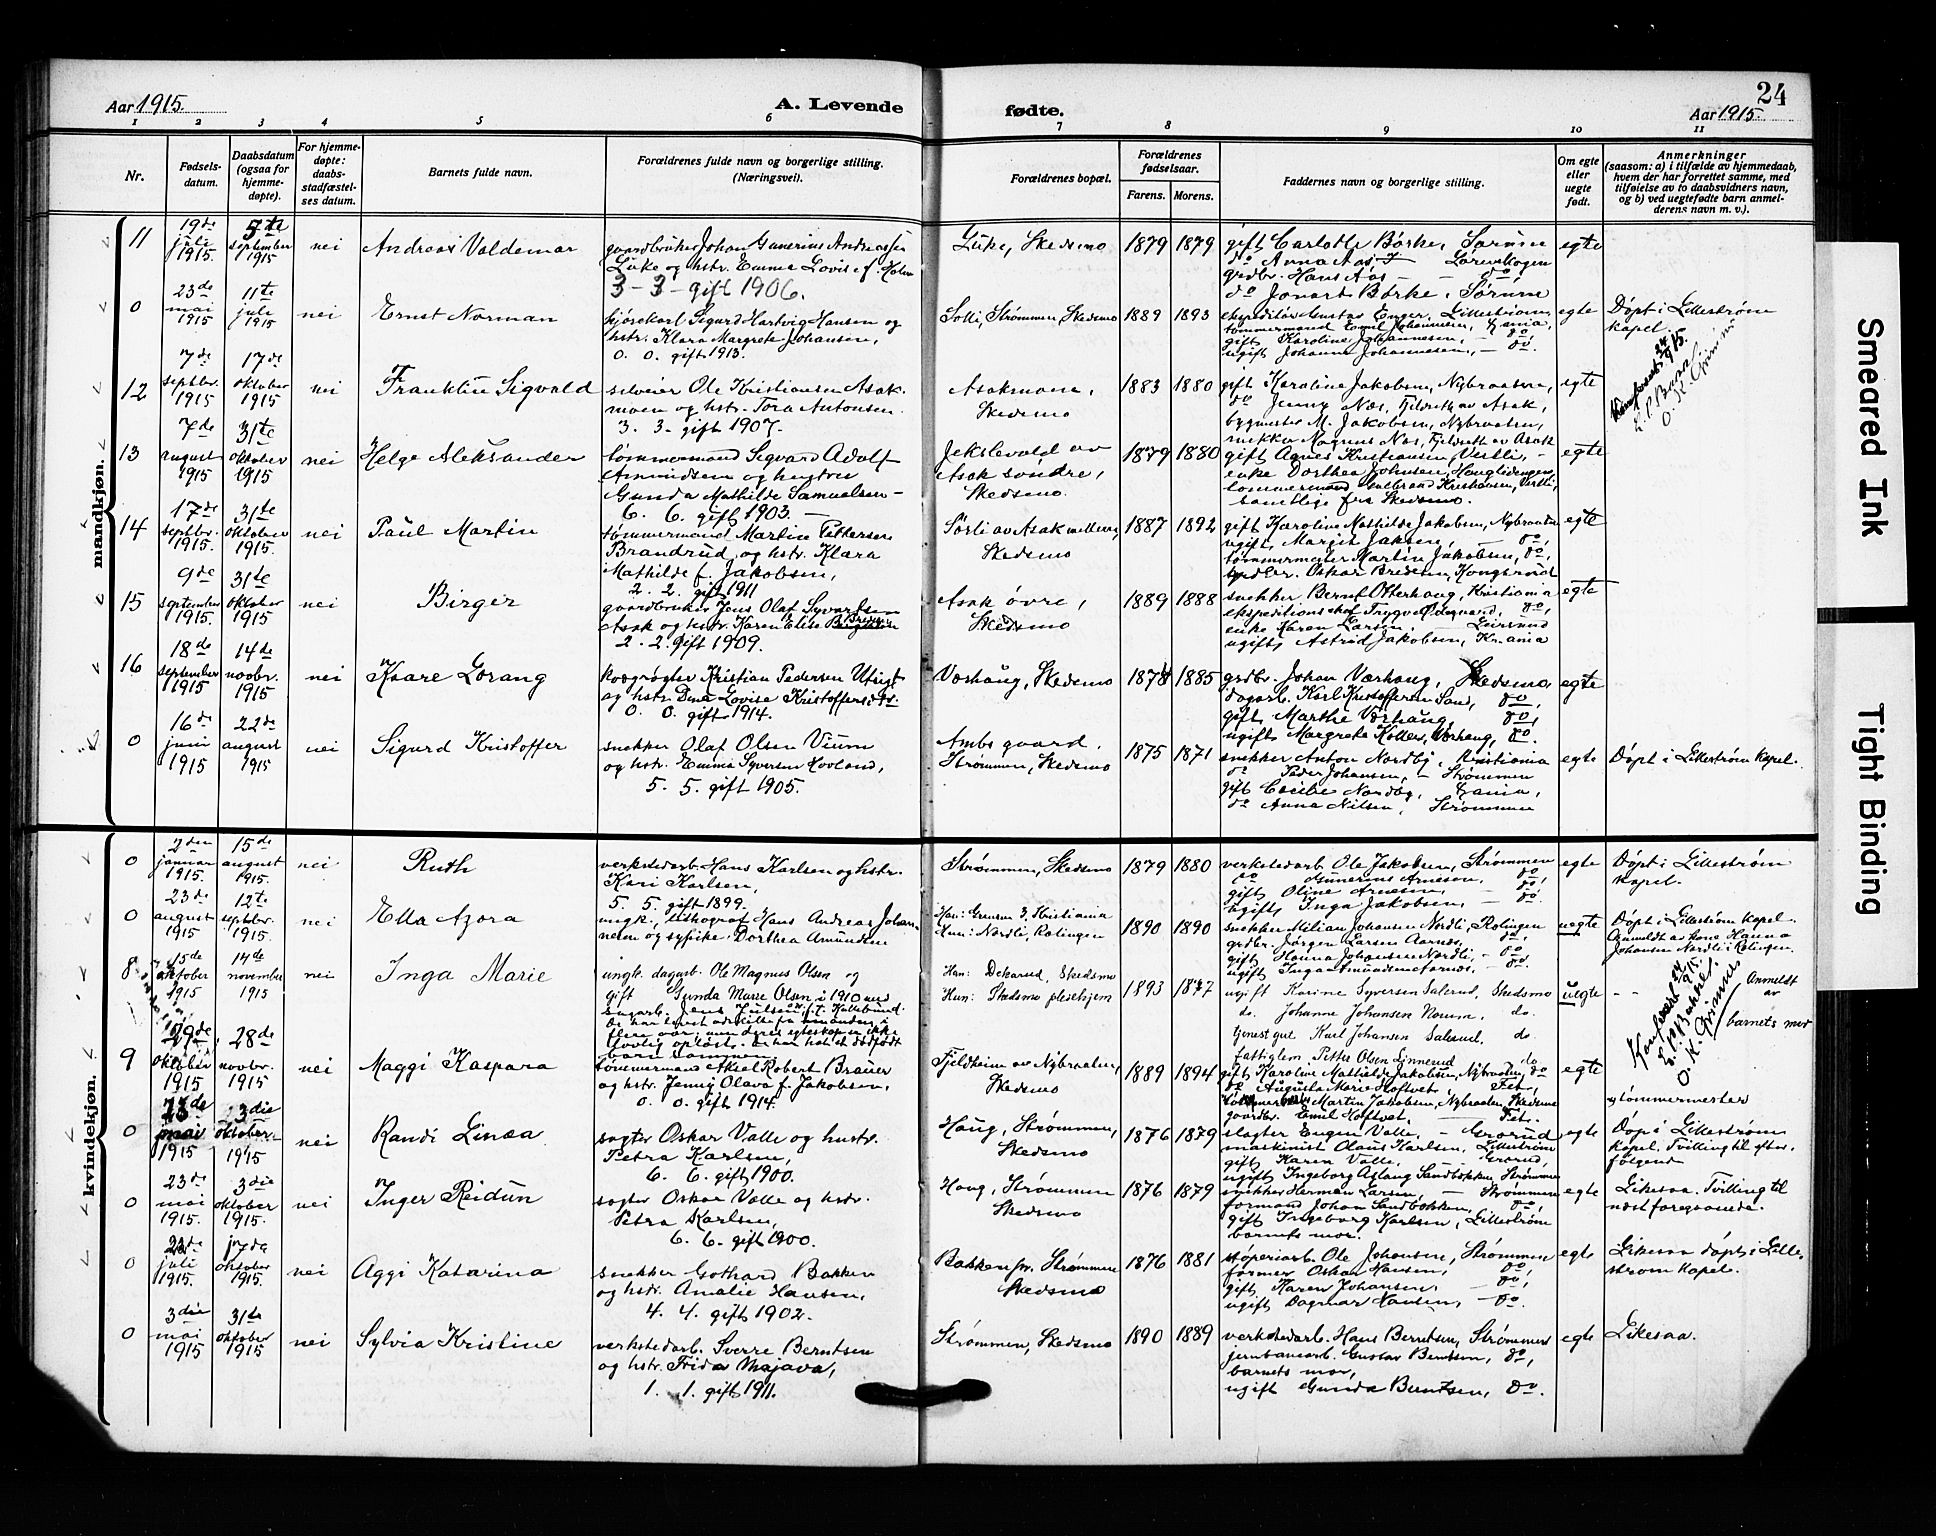 24
Aar 1915.
A. Levende
fødte.
Aar 1915.
1 2 3 4 5 6 7 8 9 10 11
Nr.
Fødsels-
datum.
Daabsdatum
(ogsaa for
hjemme-
døpte).
For hjemme-
døpte:
daabs-
stadfæstel-
ses datum.
Barnets fulde navn.
Forældrenes fulde navn og borgerlige stilling.
(Næringsvei).
Forældrenes bopæl.
Forældrenes
fødselsaar.
Farens. Morens.
Faddernes navn og borgerlige stilling.
Om egte
eller
uegte
født.
Anmerkninger
(saasom: a) i tilfælde av hjemmedaab,
hvem der har forrettet samme, med
tilføielse av to daabsvidners navn,
og b) ved uegtefødte barn anmel-
derens navn m. v.).
mandkjøn.
11
19de
juli
1915.
5te
september
1915
nei
Andreas Valdemar
gaardbruker Johan Gunerius Andreassen
Luke og hstr. Emma Lovise f. Holm
3 – 3 – gift 1906.
Luke, Skedsmo
1879 1879
gift Carlotte Børke, Sørum
do Anna Aas – Lørenskogen
grdbr. Hans Aas – – do
do Jonart Børke, Sørum
egte
0
23de
mai
1915
11te
juli
1915
nei
Ernst Norman
kjørekarl Sigurd Hartvig Hansen og
hstr. Klara Margrete Johansen,
0. 0. gift 1913.
Solli, Strømmen, Skedsmo
1889 1893
ekspeditør Gustav Enger, Lillestrøm,
tømmermand Emil Johannesen,
gift Karoline Johannesen, – do.
ugift Johanna Johannesen, – do.
egte
Døpt i Lillestrøm
kapel.
12
7de
septbr.
1915
17de
oktober
1915
nei
Franklin Sigvald
sliveier Ole Kristiansen Asak-
moen og hstr. Tora Antonsen.
3. 3. gift 1907.
Asakmoen,
Skedsmo
1883 1880
gift Karoline Jakobsen, Nybraaten,
do Jenny Næs, Fjeldreth av Asak,
bygmester M. Jakobsen, Nybraaten,
snekker Magnus Næs, Fjeldreth av Asak
egte
13
7de
august
1915
31te
oktober
1915
nei
Helge Aleksander
tømmermand Sigvard Adolf
Amundsen og hustru
Gunda Mathilde Samuelsen –
6. 6. gift 1903. –
Jekslevold av
Asak søndre,
Skedsmo.
1879 1880
gift Agnes Kristiansen, Vestli, –
enke Dorthea Johnsen, Hauglidengen,
tømmermand Gulbrand Kristiansen, Vestli,
samtlige fra Skedsmo.
egte
14
17de
septbr.
1915.
31te
oktober
1915.
nei
Paul Martin
tømmermand Martin Pettersen
Brandrud og hstr. Klara
Mathilde f. Jakobsen,
2. 2. gift 1911
Sørli av Asak mellem,
Skedsmo
1887 1892
gift Karoline Mathilde Jakobsen, Nybraaten
ugift Margit Jaksen – do,
tømmermester Martin Jakobsen, do,
Oskar Bredesen, Kongsrud
egte
15
9de
september
1915.
31te
oktober
1915
nei
Birger
gaardbruker Jens Olaf Syvertsen
Asak og hstr. Karen Elise
2. 2. gift 1909.
Asak øvre,
Skedsmo
1889 1888
snekker Bernt Otterhaug, Kristiania
ekspeditionschef Trygve Ødegaard, do,
enke Karen Larsen, Leirsund
ugift Astrid Jakobsen, Kr.ania
egte
16
18de
september
1915
14de
novbr.
1915
nei
Kaare Lorang
Kristian Pedersen
og hstr. Lovise Kristoffersdtr.
0. 0. gift 1914.
Værhaug, Skedsmo
1878 1885
grdbr. Johan Værhaug, Skedsmo,
dagarb. Karl Kristoffersen Sand, do,
gift Marthe Værhaug, do,
ugift Margrete Koller, Værhaug, do.
egte
0
16de
juni
1915
22de
august
1915
nei
Sigurd Kristoffer
snekker Olaf Olsen Vium
og hstr. Emma Syversen Hovland,
5. 5. gift 1905.
Ambs gaard,
Strømmen, Skedsmo
1875 1871
snekker Anton Nordby, Kristiania
do Peder Johansen, – Strømmen
gift Cecilie Nordby,
do Anna Nilsen, Strømmen
egte
Døpt i Lillestrøm kapel.
kvindekjøn.
0
2den
januar
1915.
15de
august
1915.
nei
Ruth
verkstedarb. Hans Karlsen og hstr.
Kari Karlsen,
5. 5. gift 1899.
Strømmen, Skedsmo
1879 1880
verkstedarb. Ole Jakobsen, Strømmen
do Gunerius Arnesen, do,
gift Oline Arnesen, – do,
ugift Inga Jakobsen, – do.
egte
Døpt i Lillestrøm
kapel.
0
23de
august
1915
12te
septbr.
1915.
nei
Ella Azora
ungk., lithograf Hans Andreas Johan-
nesen og sypike Dorthea Amundsen
Han: Grensen 3, Kristiania
Hun: Nordli, Rælingen
1890 1890
snekker Milian Johansen Nordli, Rælingen
grdbr. Jørgen Larsen Aarnes, do,
gift Hanna Johansen Nordli, – do,
ugift Inga Amundsen Aarnes, – do.
uegte
Døpt i Lillestrøm kapel –
Anmeldt av kone Hanna
Johansen Nordli i Rælingen.
8
15de
oktober
1915
14de
november
1915
nei
Inga Marie
ungk. dagarb. Ole Magnus Olsen og
gift Gunda Marie Olsen, i 1910 med
Han: Dekarud, Skedsmo
Hun: Skedsmo pleiehjem
1893 1877
ugift Karine Syversen Salerud, Skedsmo
do. Johanne Johansen Norum, do.
tjenestgut Karl Johansen Salerud, do
fattiglem Petter Olsen Linnerud do
uegte
Anmeldt
av
barnets mor
9
29de
oktober
1915
28de
novbr.
1915
nei
Maggi Kaspara
tømmermand Aksel Robert Brauer
og hstr. Jenny Olava f. Jakobsen,
0. 0. gift 1914.
Fjeldheim av Nybraaten,
Skedsmo
1889 1894
gift Karoline Mathilde Jakobsen, Nybraaten, do
do Augusta Marie Hoftvet, Fet,
Martin Jakobsen, Nybraaten, Skedsmo
gaardbr. Emil Hoftvet, – Fet.
egte
x) tømmermester
0
23de
mai
1915
3die
oktober
1915
nei
Randi Linea
sagter Oskar Valle og hustr.
Petra Karlsen,
6. 6. gift 1900.
Haug, Strømmen,
Skedsmo
1876 1879
slagter Eugen Valle, – Grorud
maskinist Olaus Karlsen, Lillestrøm
gift Karen Valle, Grorud,
ugift Ingeborg Aslaug Sandbakken, Strømmen
egte
Døpt i Lillestrøm
kapel. Tvilling til efter-
følgende
0
23de
mai
1915.
3die
oktober
1915.
nei
Inger Reidun
sagter Oskar Valle og hstr.
Petra Karlsen,
6. 6. gift 1900.
Haug, Strømmen
Skedsmo
1876 1879
snekker Herman Larsen, – Strømmen
formand Johan Sandbakken, do,
gift Ingeborg Karlsen, Lillestrøm
barnets mor.
egte
Likesaa. Tvilling til
næstforegaaende.
0
juli
1915.
17de
oktober
1915.
nei
Aggi Katarina
snekker Gothard Bakken
og hstr. Amalie Hansen,
4. 4. gift 1902.
Bakken pr. Strømmen
Skedsmo
1876 1881
støperiarb. Ole Johansen, Strømmen
former Oskar Hansen, do,
gift Karen Johansen, do,
ugift Dagmar Hansen, – do.
egte
Likesaa døpt i Lille-
strøm kapel.
0
3die
mai
1915
31te
oktober
1915
nei
Sylvia Kristine
verkstedarb. Sverre Berntsen
og hstr. Frida Majava,
1. 1. gift 1911.
Strømmen, Skedsmo
1890 1889
verkstedarb. Hans Berntsen, Strømmen
jernbanearb. Gustav Berntsen, do,
barnets mor,
ugift Gunda Berntsen, do.
egte
Likesaa.
Smeared Ink
Tight Binding